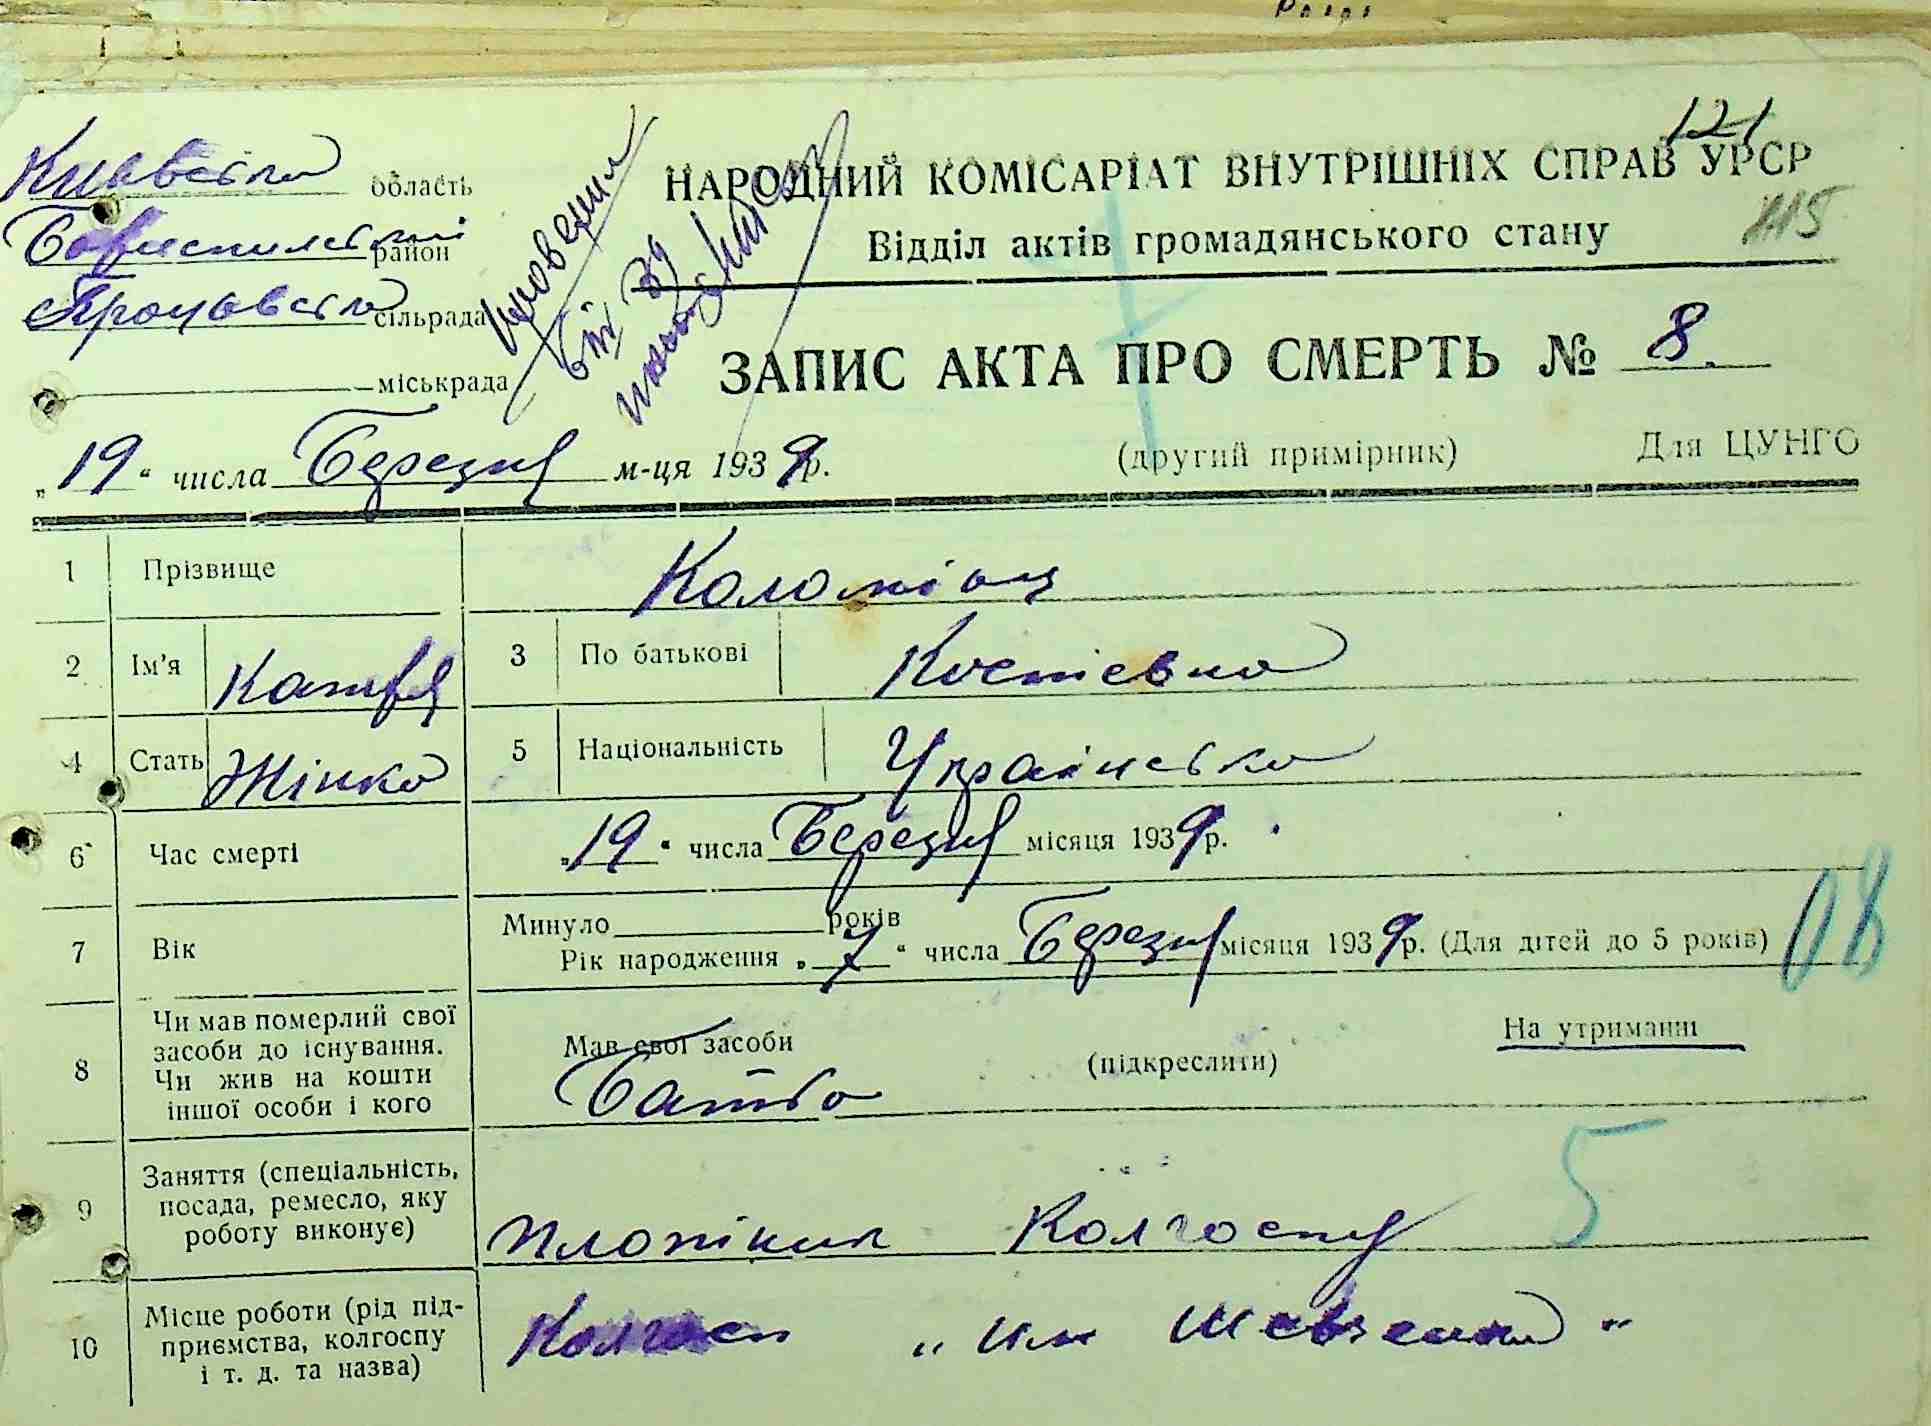 121
Київська область
НАРОДНИЙ КОМІСАРІАТ ВНУТРІШНІХ СПРАВ УРСР
Бориспильский район
Відділ актів громадянського стану
115
Процівська сільрада
міськрада
ЗАПИС АКТА ПРО СМЕРТЬ № 8.
„19“ числа Березня м-ця 1939р.
(другий примірник) Для ЦУНГО
1 Прізвище Коломієць
2 Ім'я Катря 3 По батькові Костієвна
4 Стать Жінка 5 Національність Українська
6 Час смерті „19“ числа Березня місяця 1939р.
7 Вік Минуло років
Рік народження „7“ числа Березня місяця 1939р. (Для дітей до 5 років)
08
8 Чи мав померлий свої засоби до існування. Чи жив на кошти іншої особи і кого
Мав свої засоби (підкреслити) На утриманні
Батько
5
9 Заняття (спеціальність, посада, ремесло, яку роботу виконує)
Плотнікил Колгоспу
10 Місце роботи (рід підприємства, колгоспу і т. д. та назва)
Колгосп „Им Шевченка"